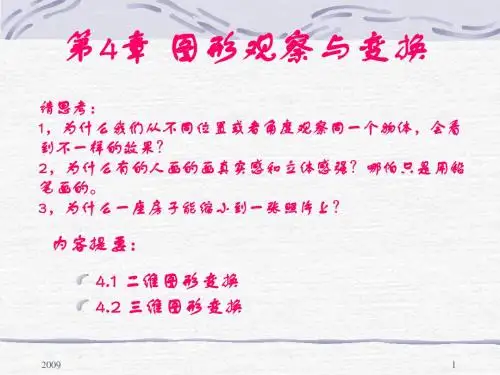 第4章 图形观察与变换
请思考：
1，为什么我们从不同位置或者角度观察同一个物体，会看
到不一样的效果？
2，为什么有的人画的画真实感和立体感强？哪怕只是用铅
笔画的。
3，为什么一座房子能缩小到一张照片上？
内容提要：
4.1 二维图形变换
4.2 三维图形变换
2009 1